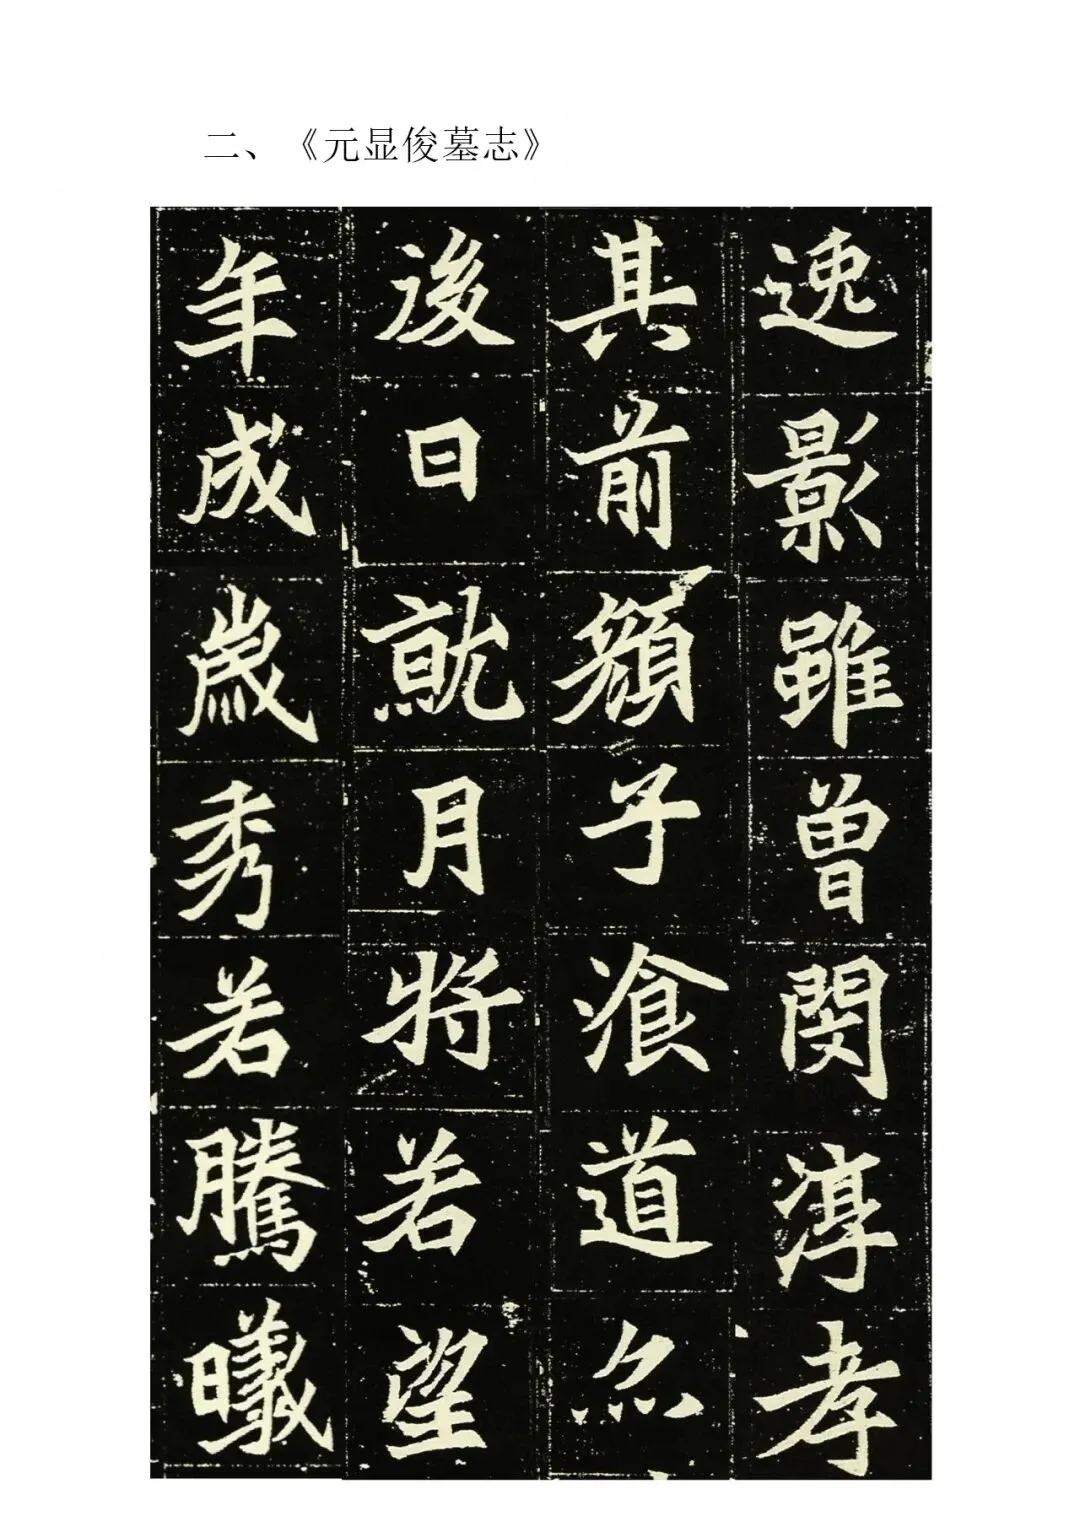 二、《元显俊墓志》
逸影雖曾閔淳孝
其前顏子湌道亦
後日就月將若望
年成歲秀若騰曦